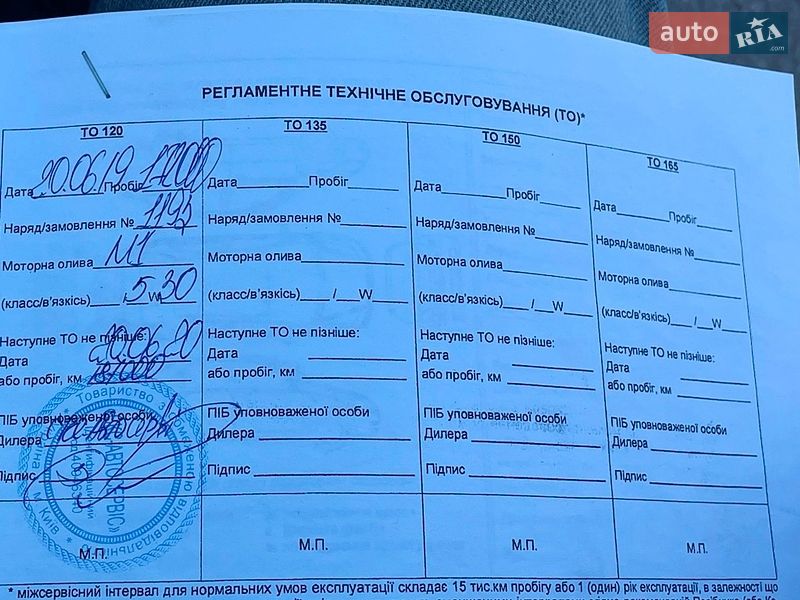 auto RIA .com
РЕГЛАМЕНТНЕ ТЕХНІЧНЕ ОБСЛУГОВУВАННЯ (ТО)*
ТО 120 ТО 135 ТО 150 ТО 165
Дата 20.06.19 Пробіг Дата Пробіг Дата Пробіг Дата Пробіг
Наряд/замовлення № 1195 Наряд/замовлення № Наряд/замовлення № Наряд/замовлення №
Моторна олива М1 Моторна олива Моторна олива Моторна олива
(класс/в'язкісь) 5 W 30 (класс/в'язкісь) / W (класс/в'язкісь) / W (класс/в'язкісь) / W
Наступне ТО не пізніше: Наступне ТО не пізніше: Наступне ТО не пізніше: Наступне ТО не пізніше:
Дата 20.06.20 Дата Дата Дата
або пробіг, км або пробіг, км або пробіг, км або пробіг, км
ПІБ уповноваженої особи ПІБ уповноваженої особи ПІБ уповноваженої особи ПІБ уповноваженої особи
Дилера Дилера Дилера Дилера
Підпис Підпис Підпис Підпис
М.П. М.П. М.П. М.П.
* міжсервісний інтервал для нормальних умов експлуатації складає 15 тис.км пробігу або 1 (один) рік експлуатації, в залежності що